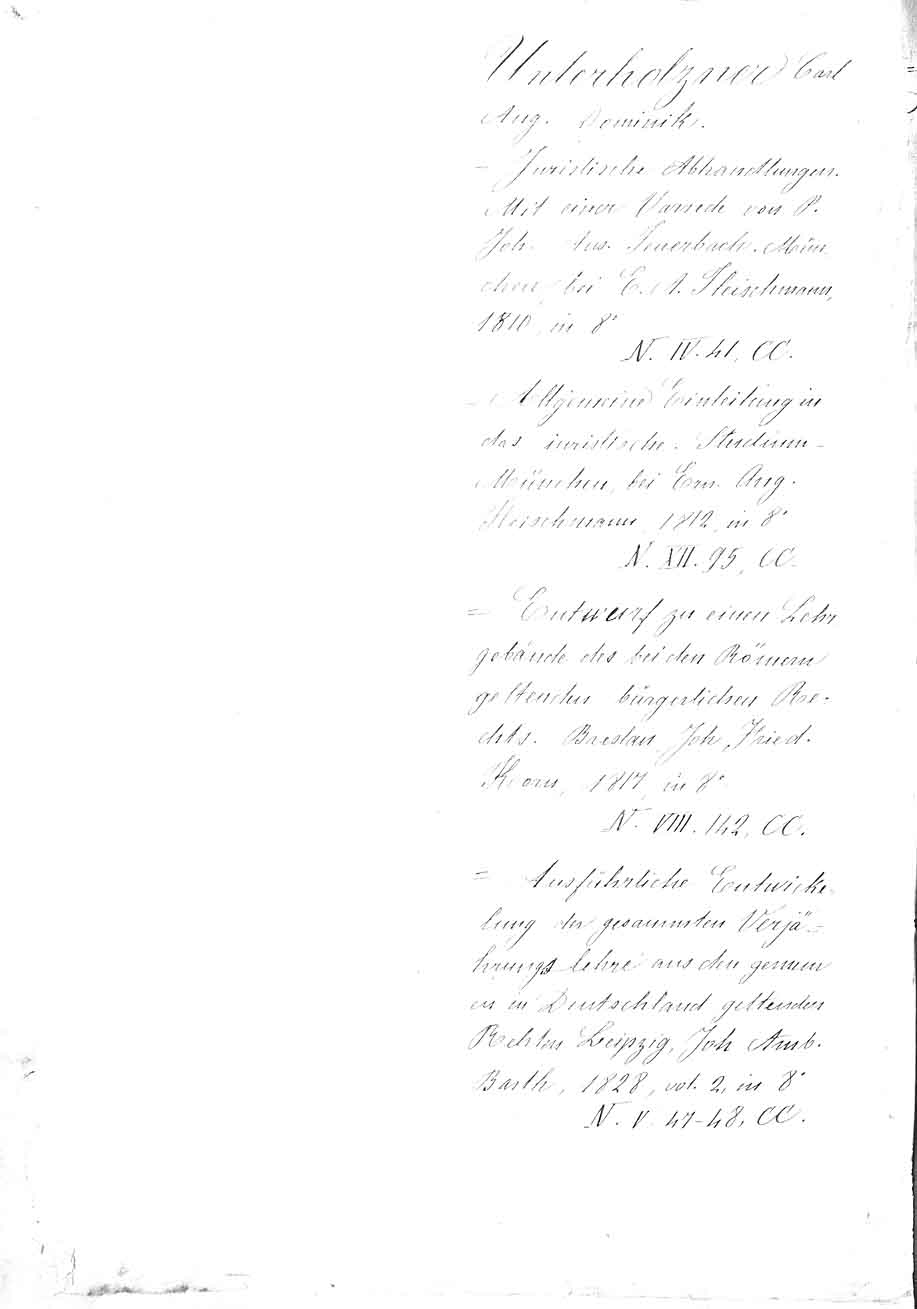 Unterholzner Carl
Aug. Dominik.
= Juristische Abhandlungen.
Mit einer Vorrede von P.
Joh. Ans. Feuerbach. Mün
chen, bei E. A. Fleischmann,
1810, in 8°
N. IV. 41, CC.
= Allgemeine Einleitung in
das iuristische Studium -
München, bei Ern. Aug.
Fleischmann, 1812, in 8°
N. XII. 95, CC.
= Entwurf zu einen Lehr
gebäude des bei den Römern
geltenden bürgerlichen Re-
chts. Breslau, Joh. Fried.
Korn, 1817, in 8°
N. VIII. 142, CC.
= Ausführliche Entwicke-
lung der gesammten Verjä=
hrungs lehre aus den gemein
en in Deutschland geltenden
Rechten Leipzig, Joh Amb.
Barth, 1828, vol. 2, in 8°
N. V. 47-48, CC.